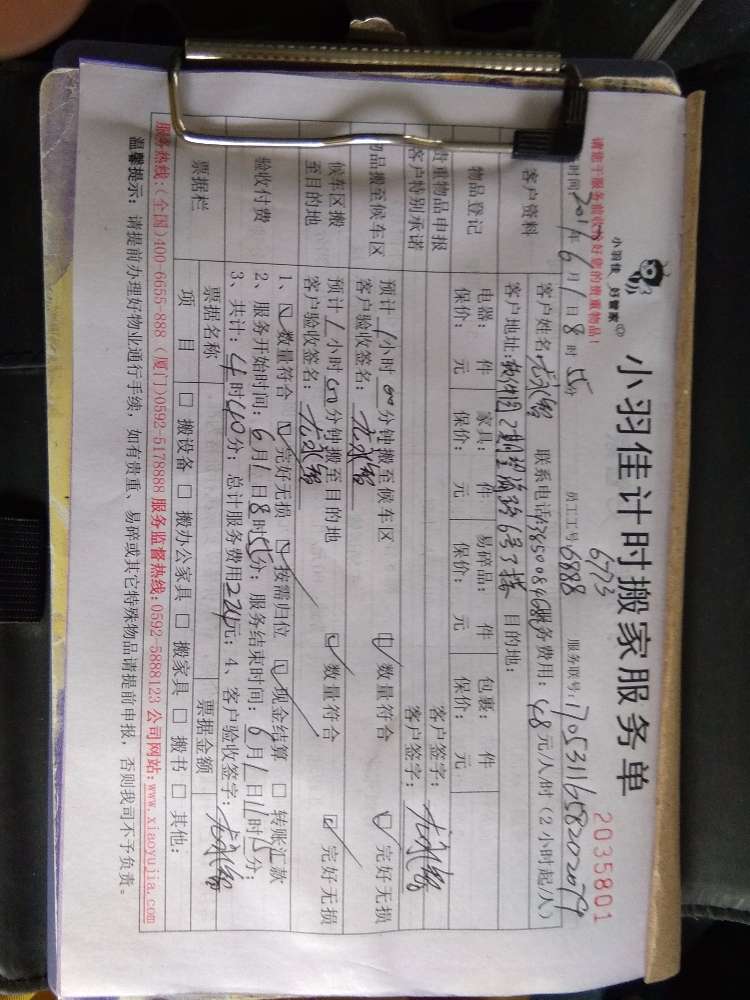 小羽佳 好管家
小羽佳计时搬家服务单
2035801
请您于服务前收拾好您的贵重物品！
6773
时间：2017年6月1日8时55分 员工工号：6888 服务联号：
客户资料
客户姓名： 联系电话： 服务费用：48元/人/时（2小时起/人）
客户地址：软件园2期望海路6号楼 目的地：
物品登记
电器： 件 家具： 件 易碎品： 件 包裹： 件
保价： 元 保价： 元 保价： 元 保价： 元
贵重物品申报 客户签字：
客户特别承诺 客户签字：
物品搬至候车区
预计1小时00分钟搬至候车区 ☑数量符合 ☑完好无损
客户验收签名：
候车区搬至目的地
预计1小时00分钟搬至目的地 ☑数量符合 ☑完好无损
客户验收签名：
验收付费
1、☑数量符合 ☑完好无损 ☑按需归位 ☑现金结算 □转账汇款
2、服务开始时间：6月1日8时55分；服务结束时间：6月1日11时15分；
3、共计：4时40分；总计服务费用224元；4、客户验收签字：
票据栏
票据名称 票据金额
项 目 □搬设备 □搬办公家具 □搬家具 □搬书 □其他：
服务热线：（全国）400-6655-888（厦门）0592-5178888 服务监督热线：0592-5888123 公司网站：www.xiaoyujia.com
温馨提示：请提前办理好物业通行手续，如有贵重、易碎或其它特殊物品请提前申报，否则我司不予负责。